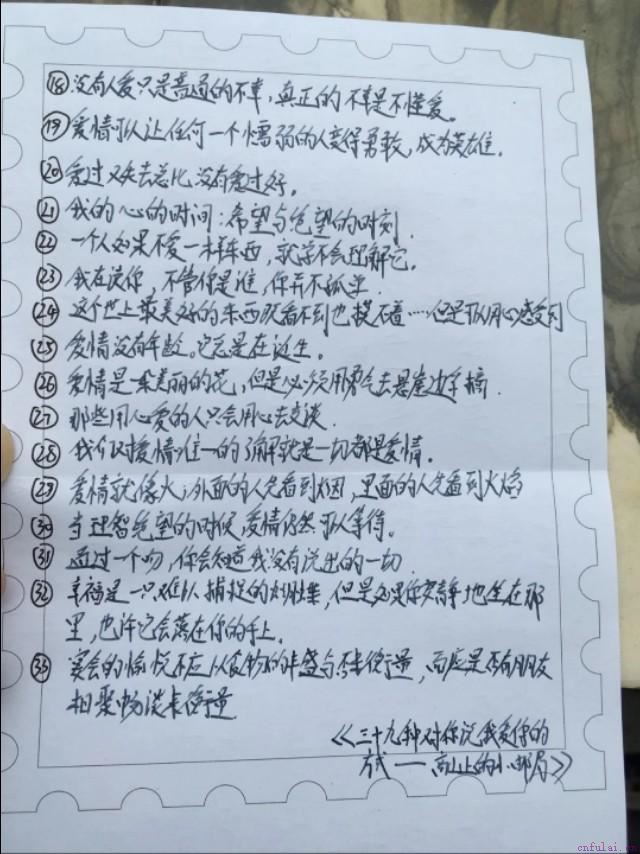 ⑱ 没有人爱只是普通的不幸，真正的不幸是不懂爱。
⑲ 爱情可以让任何一个懦弱的人变得勇敢，成为英雄。
⑳ 爱过又失去总比没有爱过好。
㉑ 我的心的时间：希望与绝望的时刻.
㉒ 一个人如果不爱一样东西，就学不会理解它。
㉓ 我在读你，不管你是谁，你并不孤单.
㉔ 这个世上最美好的东西既看不到也摸不着……但是可以用心感受到
㉕ 爱情没有年龄。它总是在诞生.
㉖ 爱情是一朵美丽的花，但是必须用勇气去悬崖边采摘.
㉗ 那些用心爱的人只会用心去交谈.
㉘ 我们对爱情唯一的了解就是一切都是爱情。
㉙ 爱情就像火；外面的人先看到烟，里面的人先看到火焰
㉚ 当理智绝望的时候，爱情仍然可以等待。
㉛ 通过一个吻，你会知道我没有说出的一切.
㉜ 幸福是一只难以捕捉的蝴蝶，但是如果你安静地坐在那
里，也许它会落在你的手上。
㉝ 宴会的愉悦不应以食物的丰盛与否来衡量，而应是否有朋友
相聚畅谈来衡量
《三十九种对你说我爱你的
方式——高山上的小邮局》
cnfulai.c